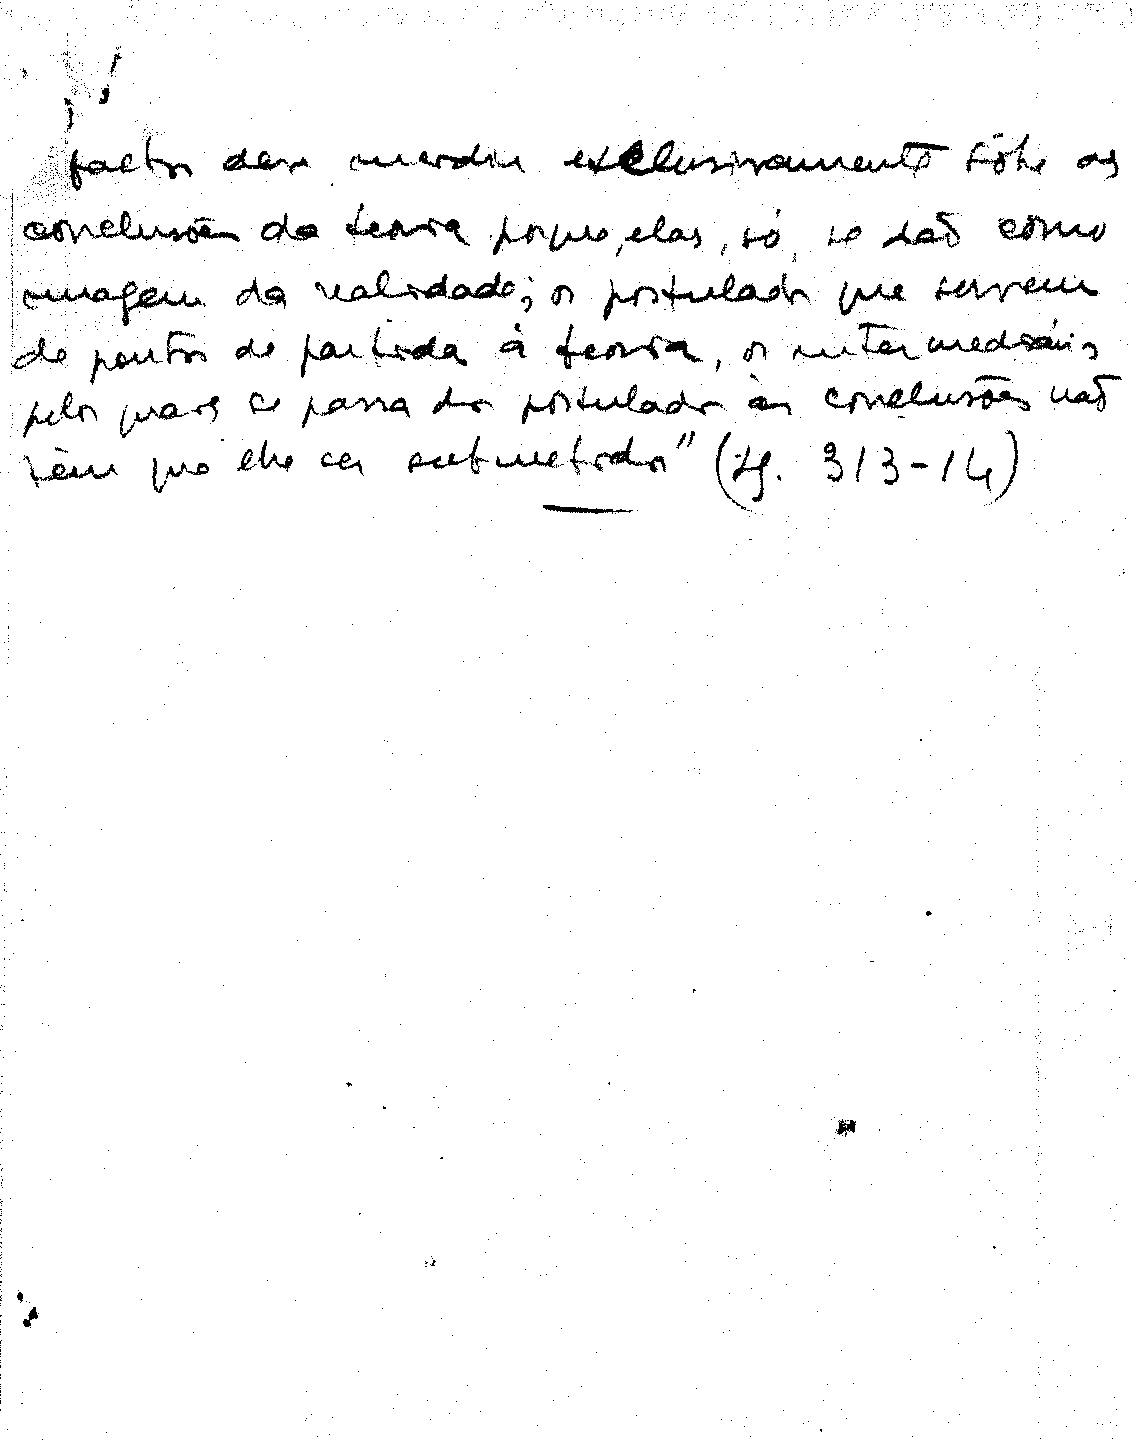 factos deve incidir exclusivamente sôbre as
conclusões da teoria porque, elas, só, se dão como
imagem da realidade; os postulados que servem
de pontos de partida à teoria, os intermediários
pelos quais se passa dos postulados às conclusões não
têm que lhe ser submetidos" (pg. 313-14)